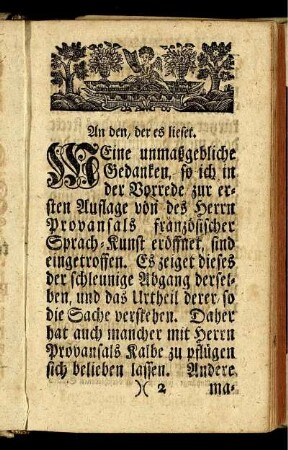 An den, der es lieset.
MEine unmaßgebliche
Gedanken, so ich in
der Vorrede zur er-
sten Auflage von des Herrn
Provansals französischer
Sprach-Kunst eröffnet, sind
eingetroffen. Es zeiget dieses
der schleunige Abgang dersel-
ben, und das Urtheil derer so
die Sache verstehen. Daher
hat auch mancher mit Herrn
Provansals Kalbe zu pflügen
sich belieben lassen. Andere
)( 2 ma-